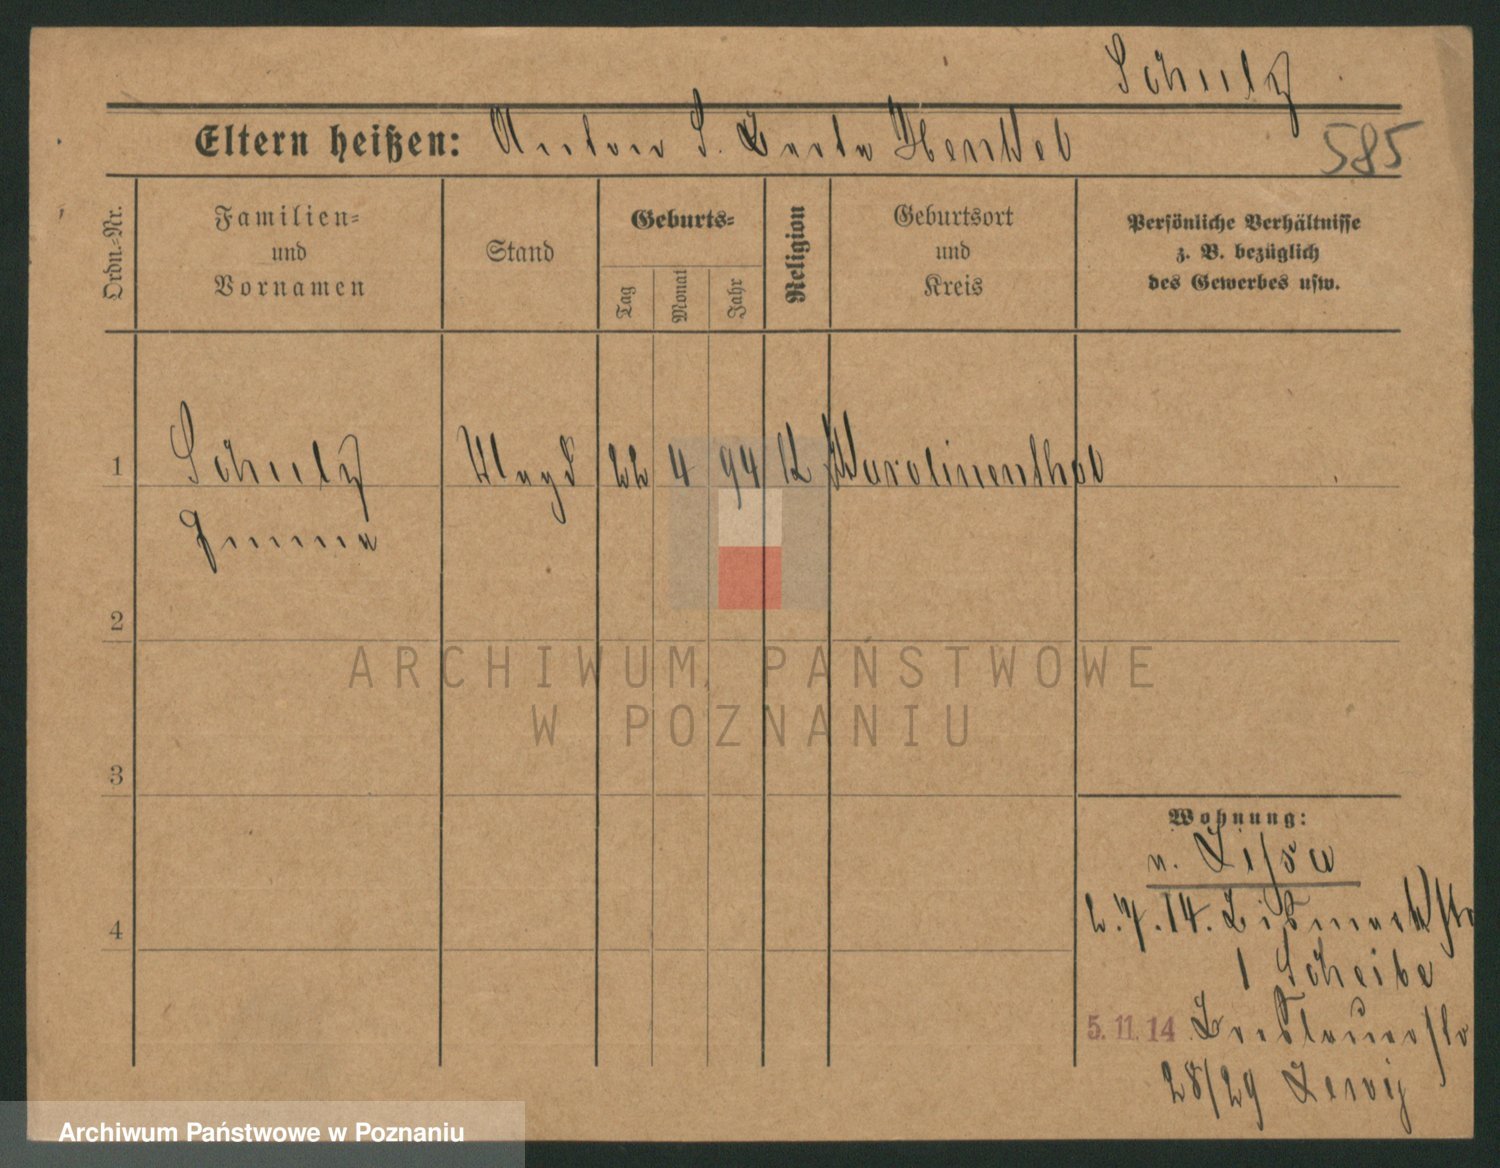 Schulz
Eltern heißen: Anton S. Berta Henkel
585
Ordn.-Nr.
Familien-
und
Vornamen
Stand
Geburts-
Tag
Monat
Jahr
Religion
Geburtsort
und
Kreis
Persönliche Verhältnisse
z. B. bezüglich
des Gewerbes usw.
1
Schulz Magd 22 4 94 K Karolinenthal
Emma
2
ARCHIWUM PAŃSTWOWE
W POZNANIU
3
4
Wohnung:
n. Lissa
2.7.14. Bismarckstr
1 Scheibe
5. 11. 14 Breslauerstr
28/29
Archiwum Państwowe w Poznaniu